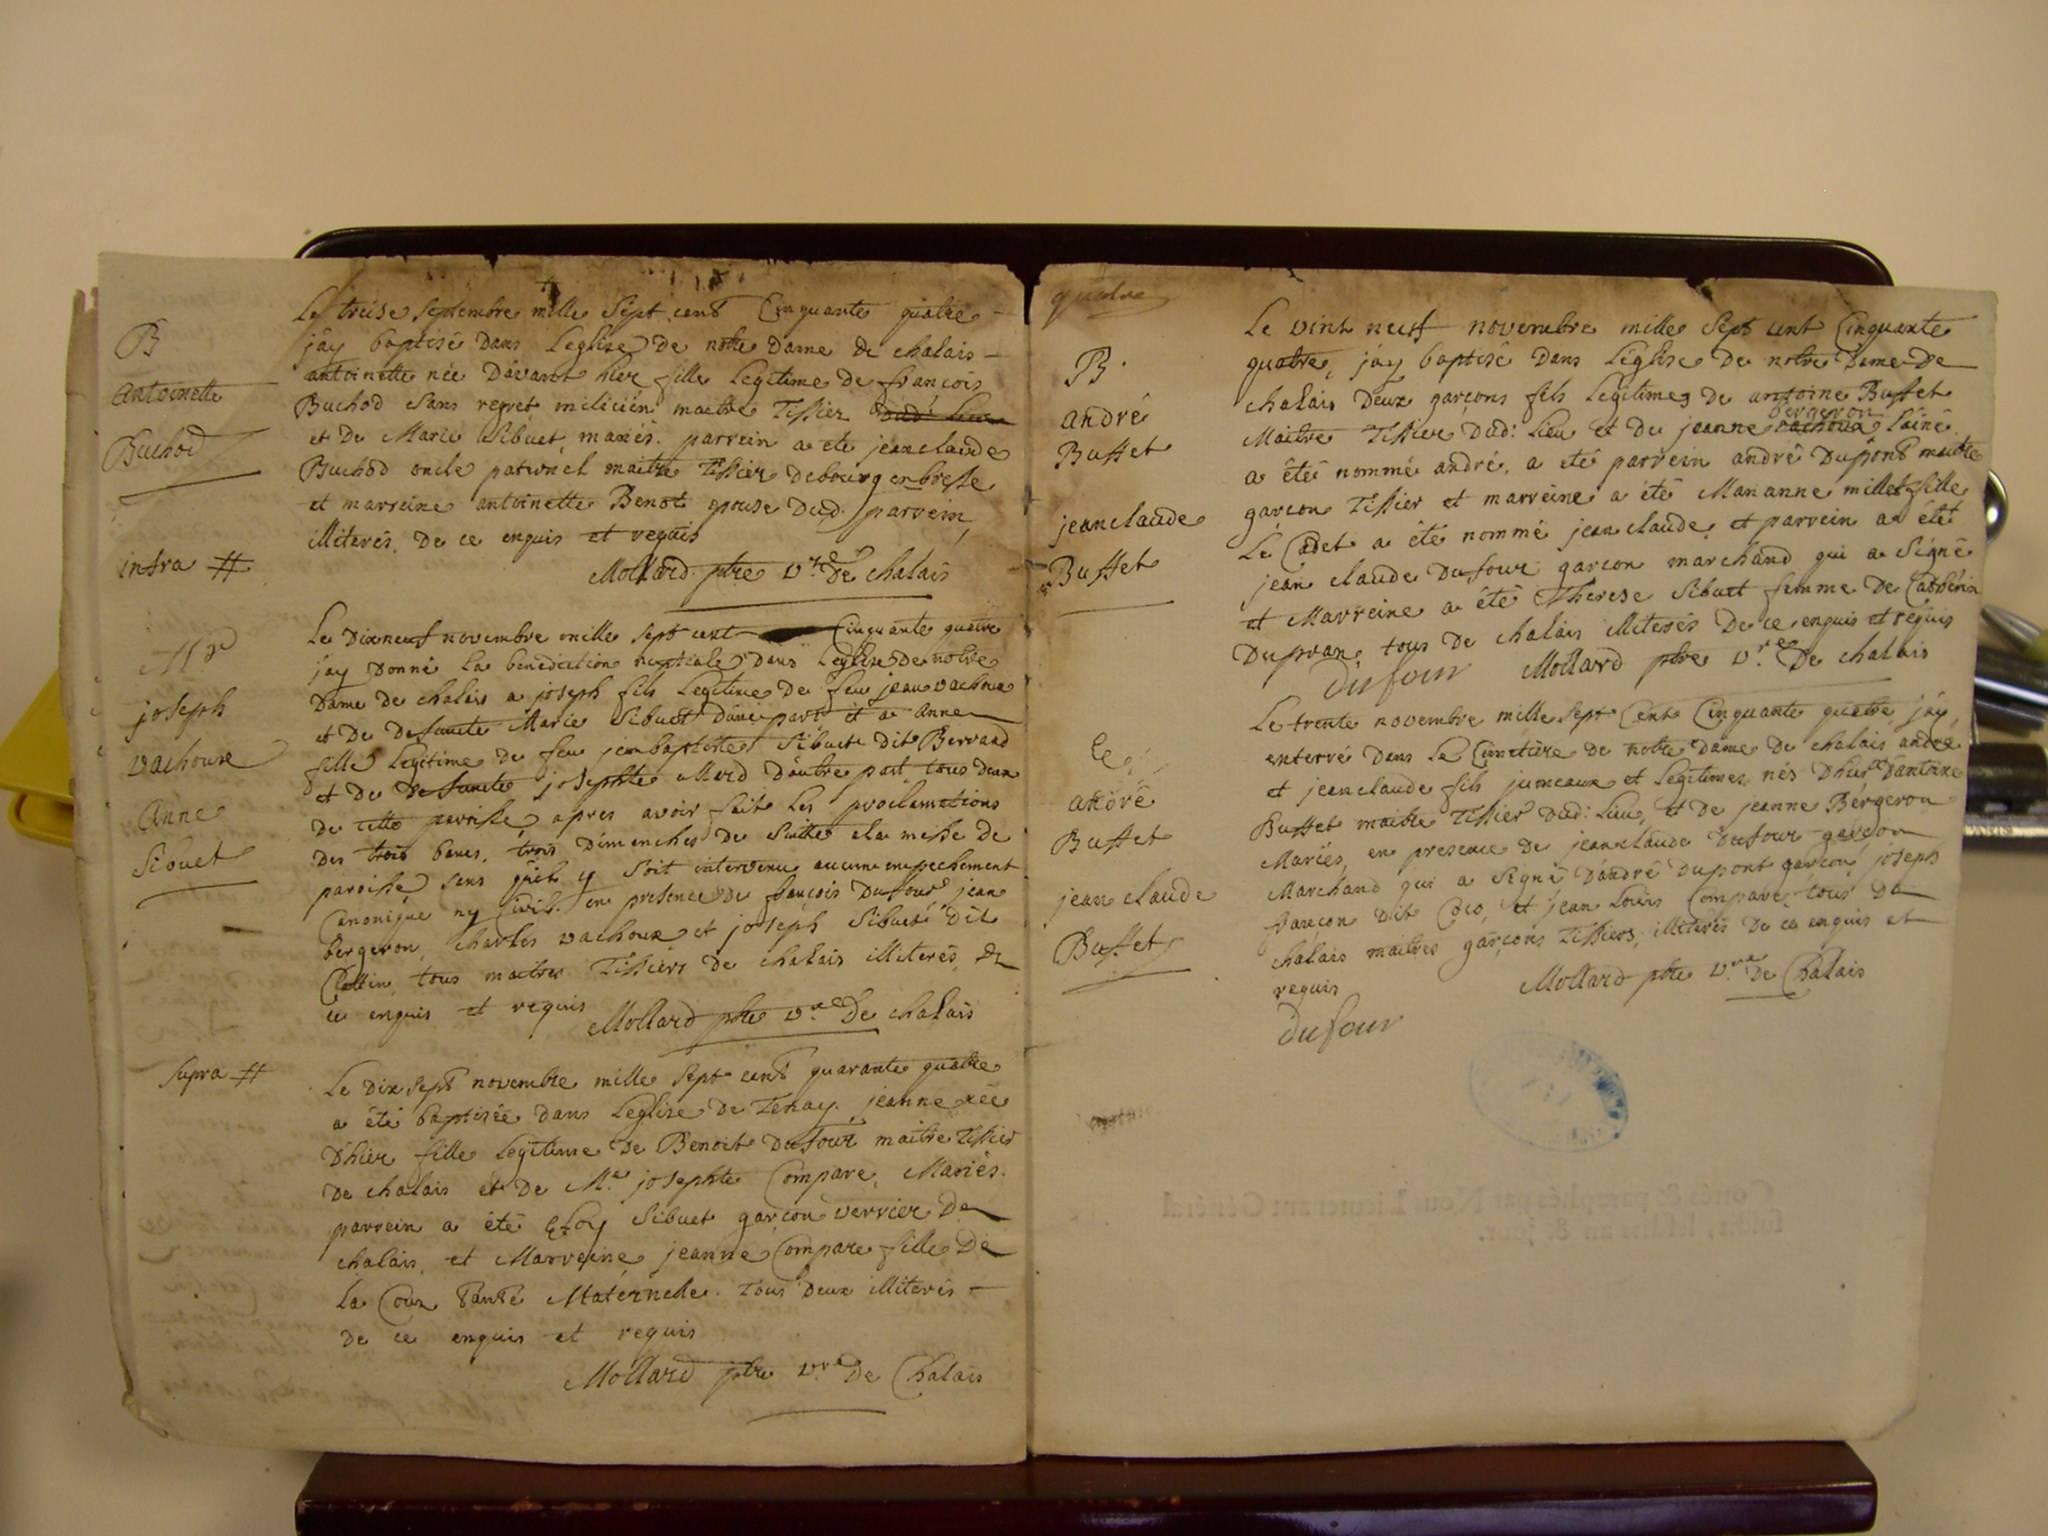 B
antoinette
Buchod
infra #
Le treise septembre mille Sept cent Cinquante quatre
jay baptisé dans Leglise de notre dame de chalais
antoinette née Davant hier fille Legitime de francois
Buchod Sans regret milicién maitre Tissier dud: lieu
et de Marie Sibuet mariés. parrein a ete jeanclaude
Buchod oncle paturnél maitre Tissier debourg enbresse
et marreine antoinette Benot epouse dud. parrein,
illiterés, de ce enquis et requis
Mollard ptre v.re de chalais
joseph
vachoux
Anne
Sibuet
Le Dixneuf novembre mille sept cent Cinquante quatre
jay Donné La benediction nuptiale dans Leglise de notre
Dame de chalais a joseph fils Legitime de feu jean vachoux
et de Defuncte Marie Sibuet Dune part et a Anne
fille Legitime de feu jeanbaptiste Sibuet dit Bervard
et de Defuncte josephte Mard Dautre part tous deux
de cette parroisse, apres avoir fait Les proclamations
des trois bancs, trois Dimenches de Suitte a la messe de
paroisse, sens quil y Soit intervenu aucun empechement
Canonique ny Civil. en presence de francois Dufour, jean
bergeron, Charles vachoux et joseph Sibuet dit
Clottin, tous maitres Tissiers de chalais illiterés, de
ce enquis et requis
Mollard ptre v.re De chalais
Supra #
Le Dix sept novembre mille Sept cent quarante quatre
a été baptisée dans Leglise de Tenay. jeanne née
Dhier fille Legitime de Benoit Dufour maitre Tissier
de chalais et de M.e josephte Compare, Mariés.
parrein a été Eloy Sibuet garçon verrier De
chalais, et Marreine, jeanne Compare fille De
La Cour Tante Maternelle. Tous deux illiterés
de ce enquis et requis
Mollard ptre v.re De Chalais
quatre
B.
andré
Buffet
jeanclaude
Buffet
Le vint neuf novembre mille Sept cent Cinquante
quatre, jay baptisé dans Léglise de notre Dame de
chalais Deux garçons fils Legitimes de antoine Buffet
bergeron
Maitre Tissier Dud: Lieu et de jeanne vachoux Lainé
a été nommé andré, a eté parrein andré Dupont maitre
garcon Tissier et marreine a été Marianne millet fille
Le Cadet a été nommé jean claude, et parrein a été
jean claude Dufour garcon marchand qui a Signé
et Marreine a été Therese Sibuet femme de
Dupran, tous de chalais illiterés De ce enquis et requis
Dufour Mollard ptre v.re De chalais
andré
Buffet
jean claude
Buffet
Le trente novembre mille Sept Cent Cinquante quatre jay
enterré dans Le Cimetière de notre dame de chalais andré
et jeanclaude fils jumeaux et Legitimes nés Dhier Dantoine
Buffet maitre Tissier dud: Lieu, et de jeanne Bérgeron
Mariés, en presence de jeanclaude Dufour garcon
Marchand qui a Signé Dandré Dupont garcon, joseph
dit Coco, et jean Louis Compare, tous de
chalais maitres garçons Tissiers, illiterés De ce enquis et
requis
Mollard ptre v.re De Chalais
Dufour